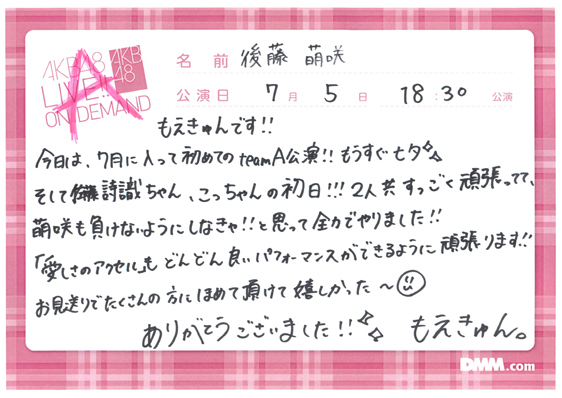 AKB48
LIVE!!
ON DEMAND
AKB
48
名 前 後藤 萌咲
公演日 7月 5日 18:30 公演
もえきゅんです!!
今日は、7月に入って初めてのteamA公演!! もうすぐ七夕
そして 詩識ちゃん、こっちゃんの初日!!! 2人共すっごく頑張ってて、
萌咲も負けないようにしなきゃ!! と思って全力でやりました!!
「愛しさのアクセル」も どんどん良いパフォーマンスができるように頑張ります!!
お見送りでたくさんの方にほめて頂けて嬉しかった〜
ありがとうございました!! もえきゅん。
DMM.com